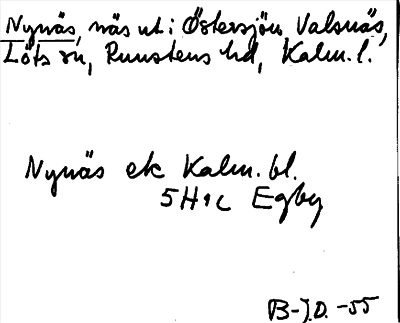 Nynäs, näs ut i Östersjön, Valsnäs,
Löts sn, Runstens hd, Kalm. l.
Nynäs ek Kalm. bl.
5H1c Egby
B-J.D. -55